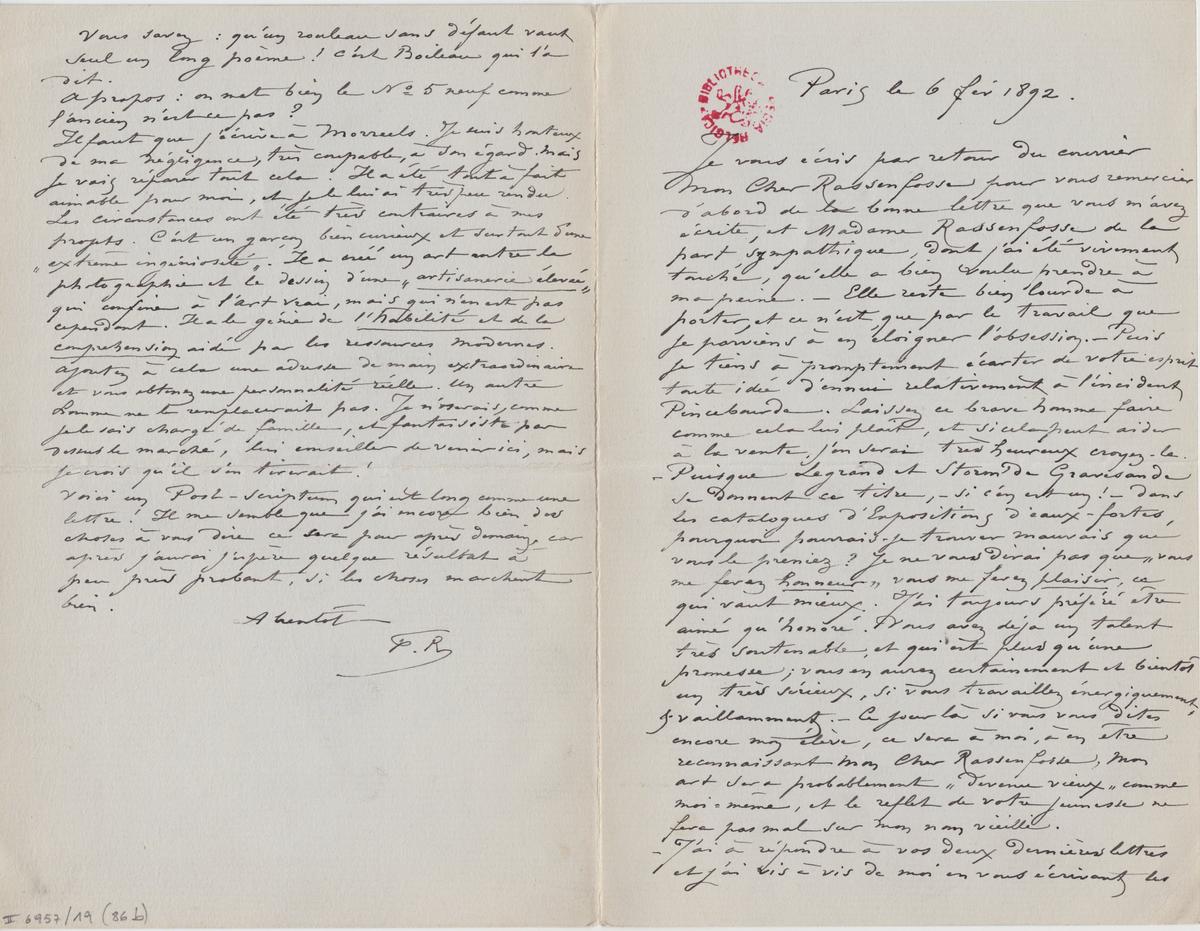 Paris le 6 fév 1892.
Je vous écris par retour du courrier
Mon Cher Rassenfosse pour vous remercier
d'abord de la bonne lettre que vous m'avez
écrite, et Madame Rassenfosse de la
part sympathique, dont j'ai été vivement
touché, qu'elle a bien voulu prendre à
ma peine. – Elle reste bien lourde à
porter, et ce n'est, que par le travail que
je parviens à en éloigner l'obsession. – Puis
je tiens à promptement écarter de votre esprit
toute idée d'ennui relativement à l'incident
Pincebourde. Laissez ce brave homme faire
comme cela lui plait, et si cela peut aider
à la vente, j'en serai très heureux croyez-le.
– Puisque Legrand et Storm de Gravesande
se donnent ce titre, – si c'en est un! – Dans
les catalogues d'Expositions d'eaux-fortes,
pourquoi pourrais-je trouver mauvais que
vous le preniez? Je ne vous dirai pas que „vous
me ferez honneur„ vous me ferez plaisir, ce
qui vaut mieux. J'ai toujours préféré être
aimé qu'honoré. Vous avez déja un talent
très soutenable, et qui est plus qu'une
promesse; vous en aurez certainement et bientôt
un très sérieux, si vous travaillez énergiquement,
& vaillamment. – Ce jour là si vous vous dites
encore mon élève, ce sera à moi, à en être
reconnaissant Mon Cher Rassenfosse, Mon
art sera probablement „devenu vieux„ comme
moi-même, et le reflet de votre jeunesse ne
fera pas mal sur mon nom vieilli.
– J'ai à répondre à vos deux dernières lettres
et j'ai vis à vis de moi en vous écrivant les
Vous savez : qu'un rouleau sans défaut vaut
seul un long poème! C'est Boileau qui l'a
dit.
A propos : on met bien le No 5 neuf comme
l'ancien n'est ce pas?
Il faut que j'écrive à Morreels. Je suis honteux
de ma négligence, très coupable, à son égard. Mais
je vais réparer tout cela. Il a été tout à fait
aimable pour moi, et je le lui ai très peu rendu.
Les circonstances ont été très contraires à mes
projets. C'est un garçon bien curieux et surtout d'une
„extrême ingéniosité„. Il a créé un art entre la
photographie et le dessin d'une „artisanerie élevée„
qui confine à l'art vrai, mais qui n'en est pas
cependant. Il a le génie de l'habilité et de la
comprehension aidé par les ressources modernes.
Ajoutez à cela une adresse de main extraordinaire
et vous obtenez une personnalité réelle. Un autre
homme ne le remplacerait pas. Je n'oserais, comme
je le sais chargé de famille, et fantaisiste par
dessus le marché, lui conseiller de venir ici, mais
je crois qu'il s'en tirerait!
Voici un Post-scriptum qui est long comme une
lettre! Il me semble que j'ai encore bien des
choses à vous dire ce sera pour après demain, car
après j'aurai j'espère quelque résultat à
peu près probant, si les choses marchent
bien.
A bientôt
F. R
II 6957/19 (86 b)